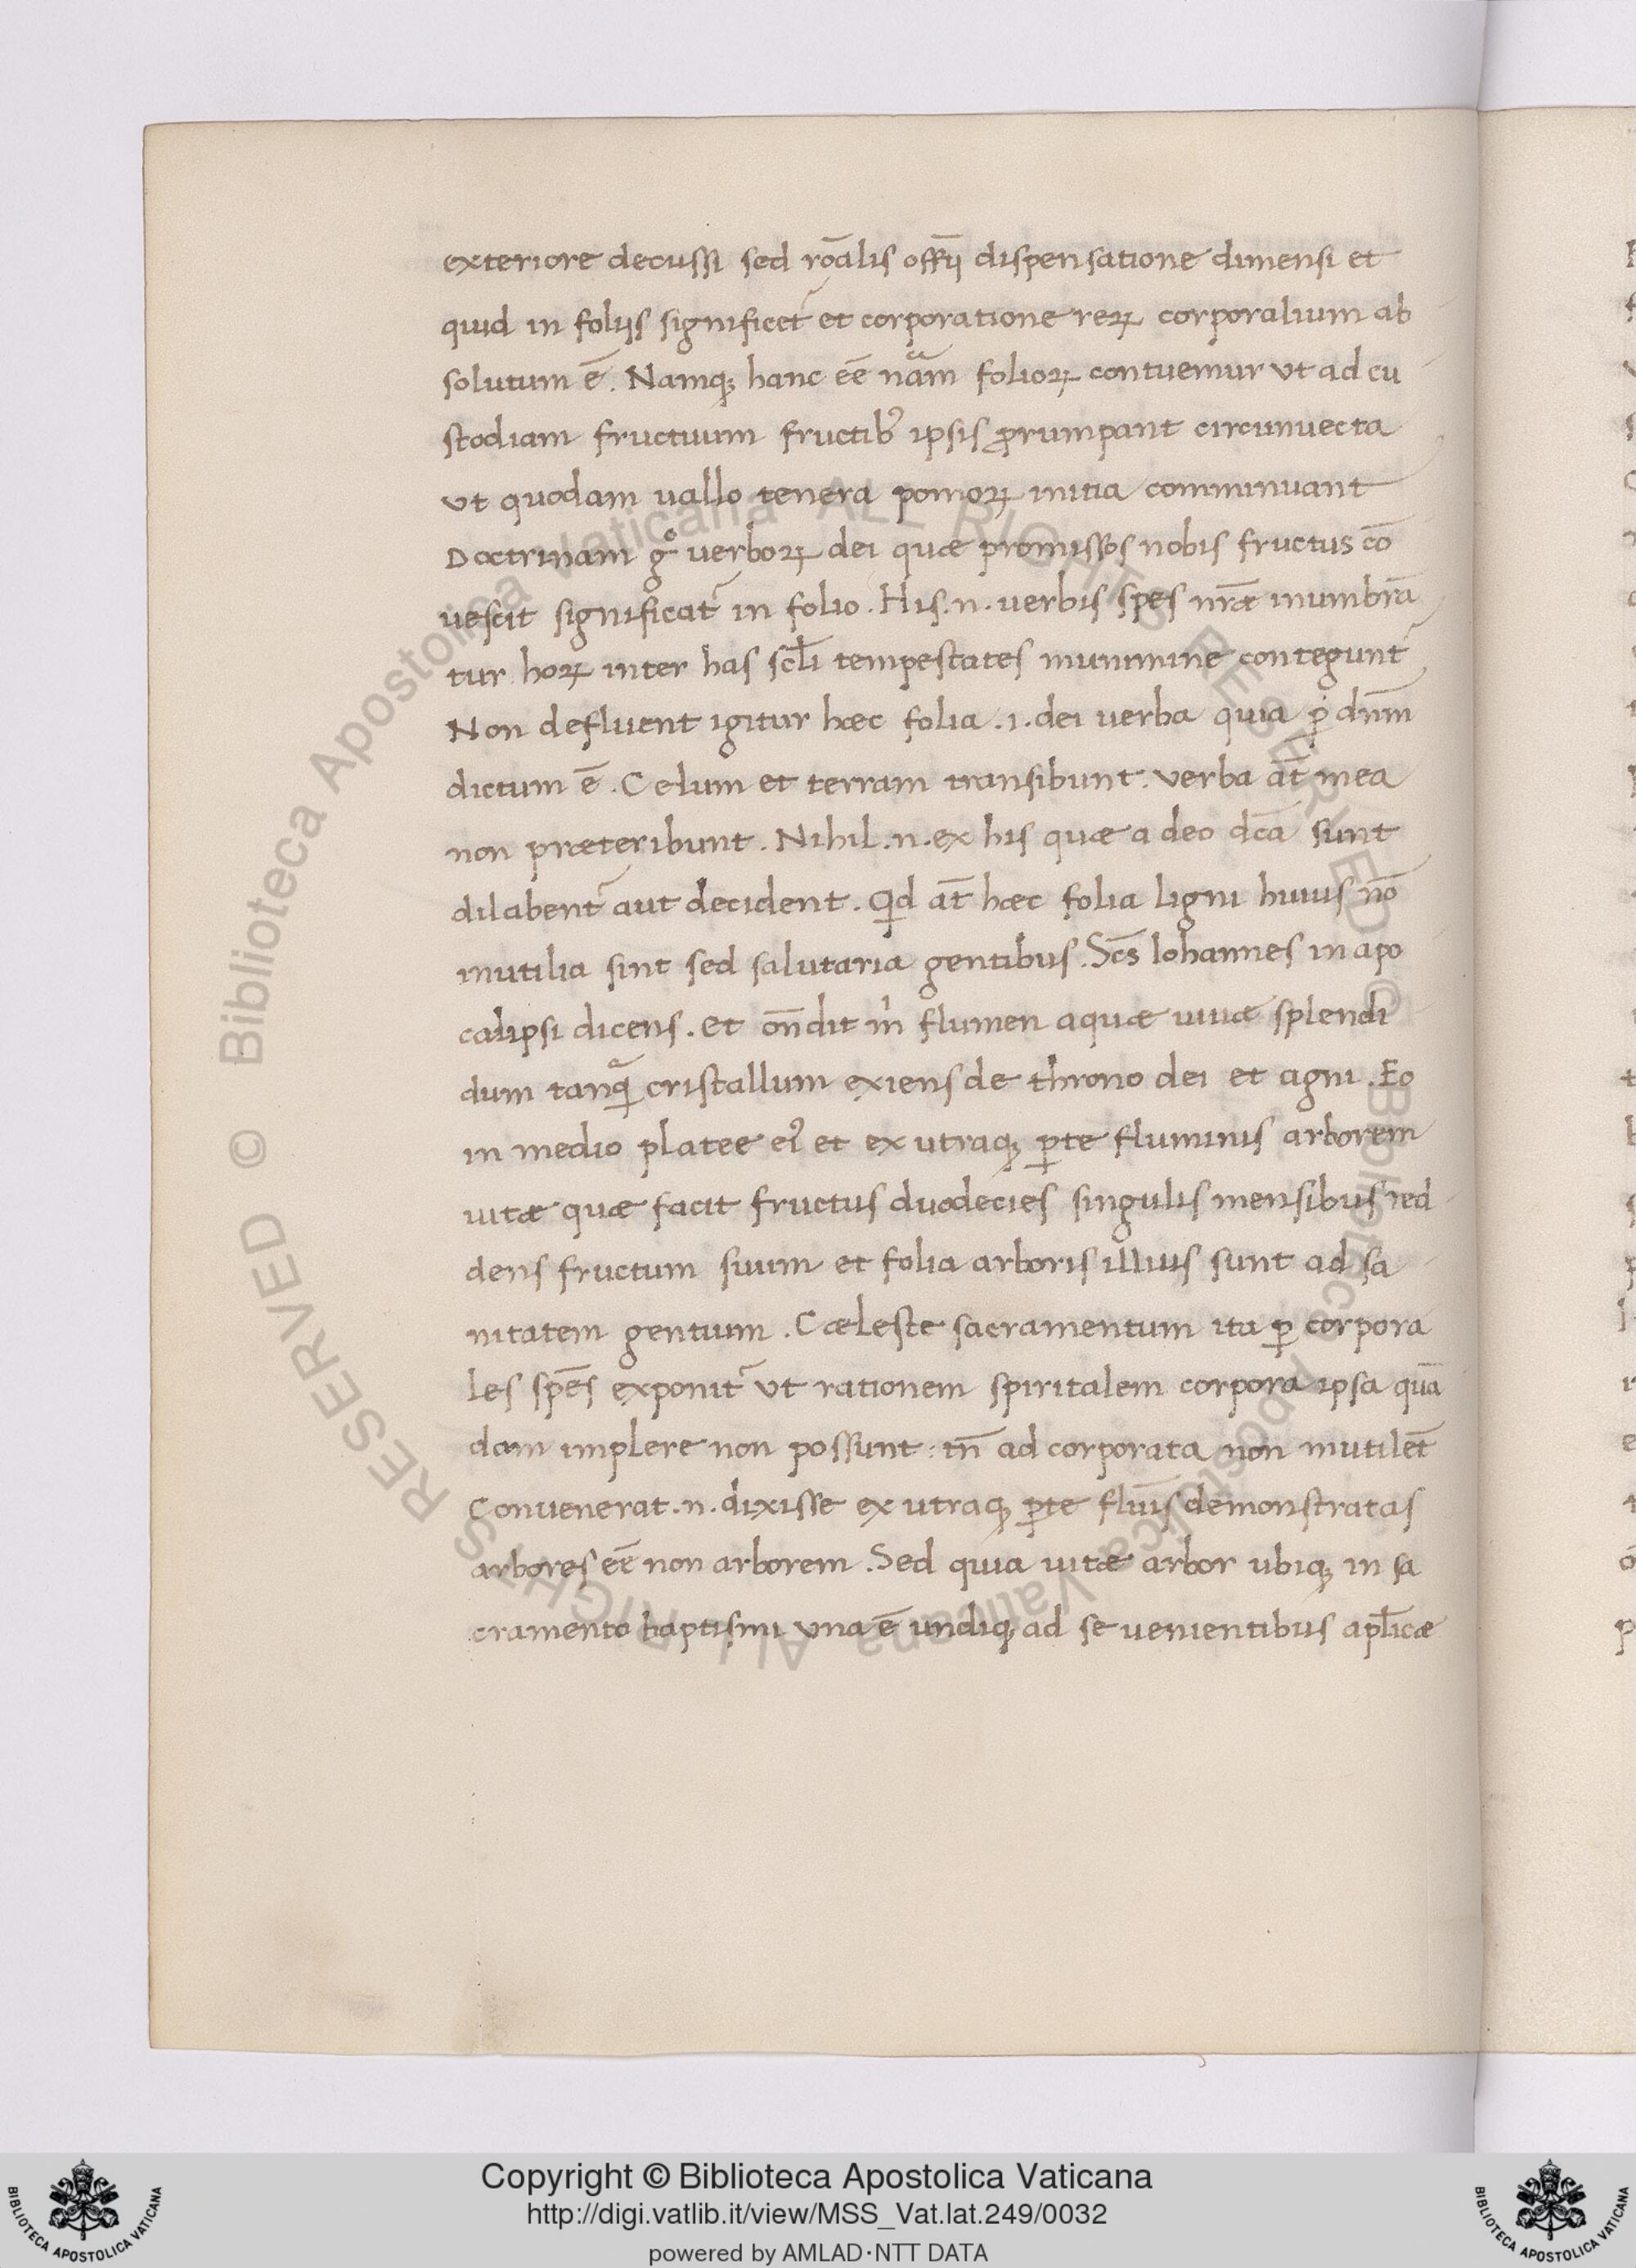 exteriore decussi sed rōalis offīj dispensatione dimensi et
quid in folijs significet᷑ et corporatione reꝝ corporalium ab
solutum ē. Namqꝫ hanc eē nāᷓm folioꝝ contuemur vt ad cu
stodiam fructuum fructibꝰ ipsis ꝓrumpant circunuecta
vt quodam uallo tenera pomoꝝ initia comminuant
Doctrinam gͦ verboꝝ dei quæ promissos nobis fructus cō
uescit significat᷑ in folio. His .n. verbis spes nr̄æ inumbrā
tur hoꝝ inter has scl̄i tempestates munimine contegunt᷑
Non defluent igitur hæc folia .i. dei uerba quia ꝑ dn̄m
dictum ē. Celum et terram transibunt. verba at̄ mea
non præteribunt. Nihil .n. ex his quæ a deo dc̄a sunt
dilabent᷑ aut decident. Qid at̄ hæc folia ligni huius nō
mutilia sint sed salutaria gentibus. Sc̄s Iohannes in apo
calipsi dicens. et on̄dit m̊ flumen aquæ uiuæ splendi
dum tanqᷓ cristallum exiens de throno dei et agni. Eo
in medio platee eiꝰ et ex utraqꝫ ꝑte fluminis arborem
uitæ quæ facit fructus duodecies singulis mensibus red
dens fructum suum et folia arboris illius sunt ad sa
nitatem gentium. Cæleste sacramentum ita ꝑ corpora
les spēs exponit᷑ vt rationem spiritalem corpora ipsa quā
dam implere non possunt: tn̄ ad corporata non mutilet̄
Convenerat .n. dixisse ex utraqꝫ ꝑte fluīs demonstratas
arbores eē non arborem. Sed quia uitæ arbor ubiqꝫ in sa
cramento baptismi vna ē undiqꝫ ad se uenientibus apl̄icæ
Copyright © Biblioteca Apostolica Vaticana
http://digi.vatlib.it/view/MSS_Vat.lat.249/0032
powered by AMLAD·NTT DATA
BIBLIOTECA APOSTOLICA VATICANA
BIBLIOTECA APOSTOLICA VATICANA
© Biblioteca Apostolica Vaticana ALL RIGHTS RESERVED © Biblioteca Apostolica Vaticana ALL RIGHTS RESERVED